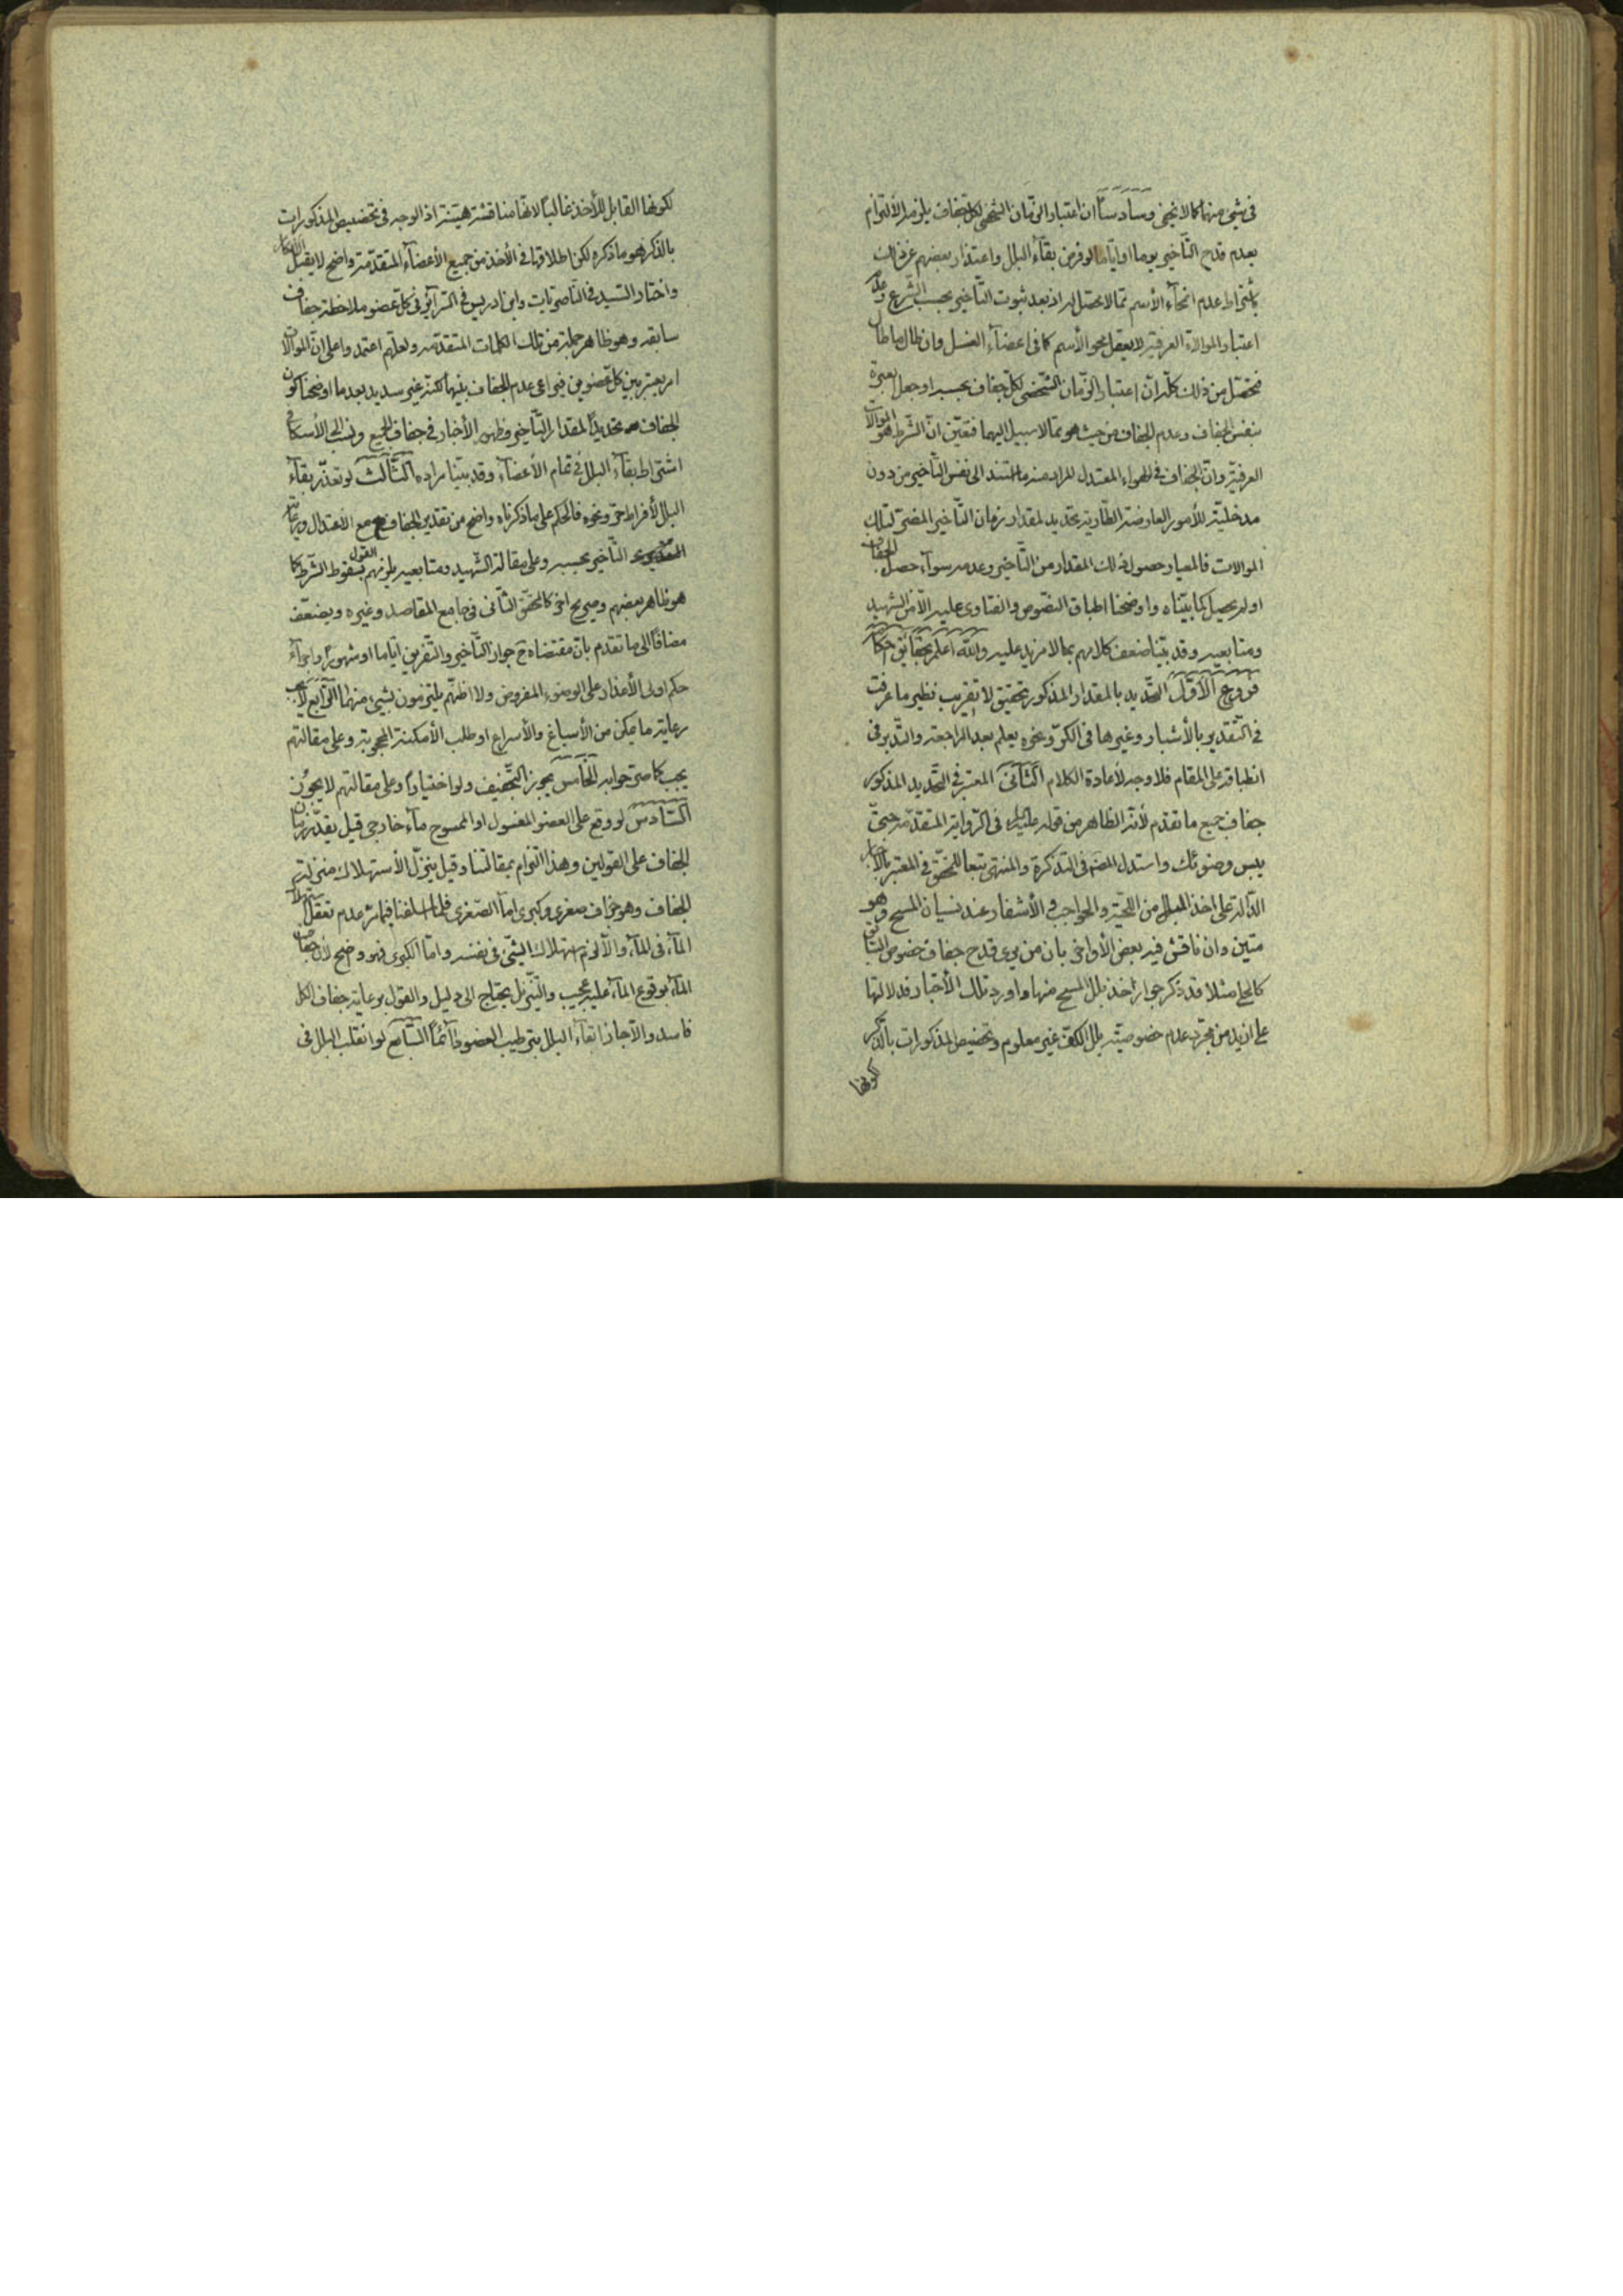 في شيء منها كما لا يخفى وسادسًا ان اعتبار الزمان الشخصي لكل جفاف يلزمه الالتزام
بعدم قدح التأخير يوما او اياما لو فرض بقاء البلل واعتذار بعضهم عن ذلك
باشتراط عدم انمحاء الأسم مما لا محصل له اذ بعد ثبوت التأخير بحسب الشرع وعدم
اعتبار الموالاة العرفية لا يعقل محو الأسم كما في اعضاء الغسل وان طال ما طال
فتحصل من ذلك كله ان اعتبار الزمان الشخصي لكل جفاف بحسبه او جعل العبرة
بنفس الجفاف وعدم الجفاف من حيث هو مما لا سبيل اليهما فتعين ان الشرط هو الموالات
العرفية وان الجفاف في الهواء المعتدل المراد منه ما استند الى نفس التأخير من دون
مدخلية للأمور العارضة الطارية تحديد لمقدار زمان التأخير المضر لتلك
الموالات فالمعيار حصول ذلك المقدار من التأخير وعدمه سواء حصل الجفاف
او لم يحصل كما بيناه واوضحنا اطباق النصوص والفتاوى عليه الا من الشهيد
ومتابعيه وقد بينا ضعف كلامهم بما لا مزيد عليه والله اعلم بحقائق احكامه
فروع الأول التحديد بالمقدار المذكور تحقيق لا تقريب نظير ما عرفت
في التقدير بالأشبار وغيرها في الكر ونحوه يعلم بعد المراجعة والتدبر في
انطباقه على المقام فلا وجه لأعادة الكلام الثاني المعتبر في التحديد المذكور
جفاف جميع ما تقدم لأنه الظاهر من قوله عليه السلام في الرواية المتقدمة حتى
يبس وضوئك واستدل المصنف في التذكرة والمنتهى تبعا للمحقق في المعتبر بالأخبار
الدالة على اخذ البلل من اللحية والحواجب والأشفار عند نسيان المسح وهو
متين وان ناقش فيه بعض الأواخر بان من يرى قدح جفاف خصوص السابق
كالحلي مثلا قد ذكر جواز اخذ بلل المسح منها واورد تلك الأخبار فدلالتها
على ازيد من مجرد عدم خصوصية بلل الكف غير معلوم وتخصيص المذكورات بالذكر
لكونها
لكونها القابل للأخذ غالبًا لانها مناقشة هينة اذ الوجه في تخصيص المذكورات
بالذكر هو ما ذكره لكن اطلاقها في الأخذ من جميع الأعضاء المتقدمة واضح لا يقبل الأنكار
واختار السيد في الناصريات وابن ادريس في السرائر في كل عضو ملاحظة جفاف
سابقه وهو ظاهر جملة من تلك الكلمات المتقدمة ولعلهم اعتمدوا على ان الموالات
امر يعتبر بين كل عضوين فيراعى عدم الجفاف بينهما لكنه غير سديد بعد ما اوضحنا كون
الجفاف تحديدًا لمقدار التأخير وظهور الأخبار في جفاف الجميع ونسب الى الأسكافي
اشتراط بقاء البلل في تمام الأعضاء وقد بينا مراده الثالث لو تعذر بقاء
البلل لأفراط حر ونحوه فالحكم على ما ذكرناه واضح من تقدير الجفاف مع الاعتدال ورعاية
التأخير بحسبه وعلى مقالة الشهيد ومتابعيه يلزمهم القول بسقوط الشرط كما
هو ظاهر بعضهم وصريح اخر كالمحقق الثاني في جامع المقاصد وغيره ويضعفه
مضافًا الى ما تقدم بان مقتضاه ح جواز التأخير والتفريق اياما او شهورًا واجراء
حكم اولى الأعذار على الوضوء المفروض ولا اظنهم يلتزمون بشيء منهما الرابع لا يجب
رعاية ما يمكن من الأسباغ والأسراع او طلب الأمكنة المحجوبة وعلى مقالتهم
يجب كما صرحوا به الخامس يجوز التجفيف ولو اختيارًا وعلى مقالتهم لا يجوز
السادس لو وقع على العضو المغسول او الممسوح ماء خارجي قيل يقدر زمان
الجفاف على القولين وهذا التزام بمقالتنا وقيل ينزل الأستهلاك منزلة
الجفاف وهو جزاف صغرى وكبرى اما الصغرى فلما اسلفنا فيما مر عدم تعقل استهلاك
الماء في الماء والا لزم استهلاك الشيء في نفسه واما الكبرى فهو واضح لأن جفاف
الماء بوقوع الماء عليه عجيب والتنزيل يحتاج الى دليل والقول برعاية جفاف الكل
فاسد والا جاز ابقاء البلل بترطيب العضو دائمًا السابع لو انقلب البلل في